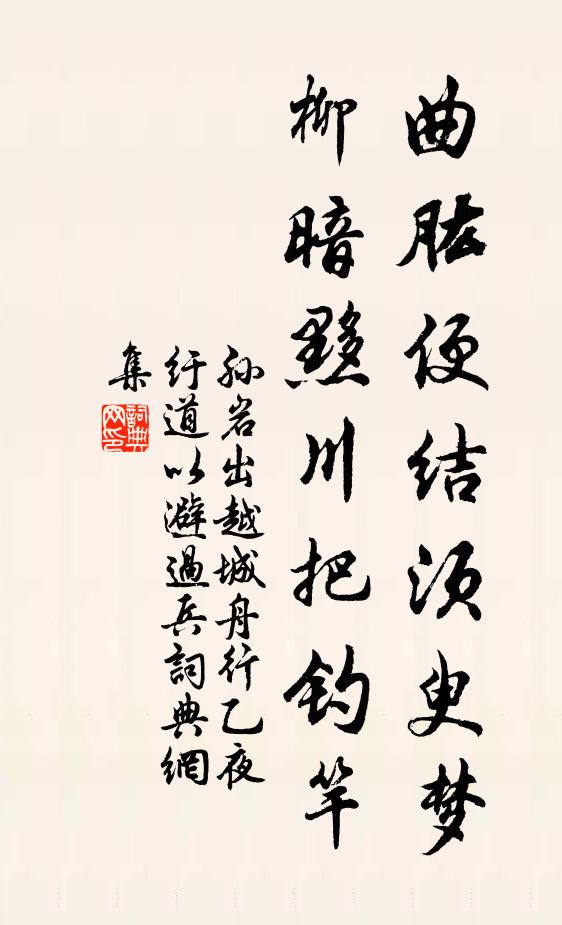 曲肱便结须臾梦
柳暗黟川把钓竿
孙岩出越城舟行乙夜
纡道以避過兵詞典網
集
詞典
网印